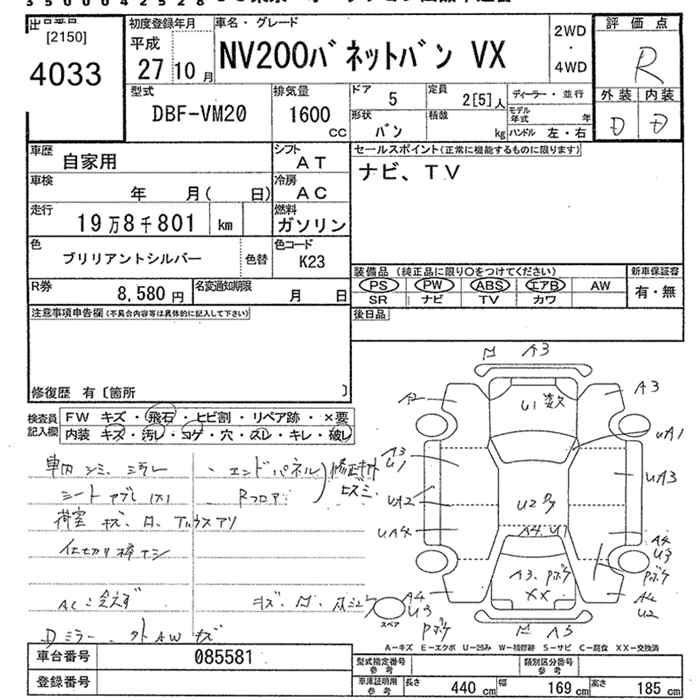 3500042528
[2150]
4033
初度登録年月
平成
27 10 月
車名・グレード
NV200バネットバン VX
2WD
・
4WD
評価点
R
外装 内装
D D
型式
DBF-VM20
排気量
1600
CC
ドア 5
形状 バン
定員 2[5]人
積載 kg
ディーラー・並行
モデル年式 年
ハンドル 左・右
車歴
自家用
シフト
AT
セールスポイント(正常に機能するものに限ります)
ナビ、TV
車検
年 月( 日)
冷房
AC
走行
19万8千801 km
燃料
ガソリン
色
ブリリアントシルバー
色替
色コード
K23
装備品 (純正品に限り○をつけてください)
PS PW ABS エアB AW
SR ナビ TV カワ
新車保証書
有・無
R券
8,580 円
名変通知期限
月 日
後日品
注意事項申告欄(不具合内容等は具体的に記入して下さい)
修復歴 有〔箇所 〕
検査員記入欄
FW キズ・飛石・ヒビ割・リペア跡・×要
内装 キズ・汚レ・コゲ・穴・スレ・キレ・破レ
車内 シミ ミラレ
・エンドパネル
シート
・Rフロア
荷室 キズ、凹、アルウスアリ
仕切リ棒ナシ
AC
Dミラー 外AWキズ
A3
A3
U1
UA1
A3
U1
UA3
UA2
UA4
A4、U1
A4
U3
A3、Pボケ
XX
Pボケ
A4
U3
A4
U2
スペア
Pボケ
A5
A-キズ E-エクボ U-凹み W-補修跡 S-サビ C-腐食 XX-交換済
車台番号
085581
登録番号
型式指定番号
参考
類別区分番号
参考
車庫証明用
参考
長さ 440 cm 幅 169 cm 高さ 185 cm